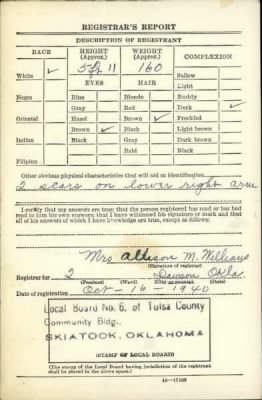 REGISTRAR'S REPORT
DESCRIPTION OF REGISTRANT
RACE HEIGHT (Approx.) WEIGHT (Approx.) COMPLEXION
White ✓ 5 ft 11 160 Sallow
EYES HAIR Light
Negro Blue Blonde Ruddy
Gray Red Dark ✓
Oriental Hazel Brown ✓ Freckled
Brown ✓ Black Light brown
Indian Black Gray Dark brown
Bald Black
Filipino
Other obvious physical characteristics that will aid in identification
2 scars on lower right arm
I certify that my answers are true; that the person registered has read or has had
read to him his own answers; that I have witnessed his signature or mark and that
all of his answers of which I have knowledge are true, except as follows:
Mrs Allison M. Williams
(Signature of registrar)
Registrar for 2 Dawson Okla.
(Precinct) (Ward) (City or county) (State)
Date of registration Oct - 16 - 1940
Local Board No. 6, of Tulsa County
Community Bldg.
SKIATOOK, OKLAHOMA
(STAMP OF LOCAL BOARD)
(The stamp of the Local Board having jurisdiction of the registrant
shall be placed in the above space.)